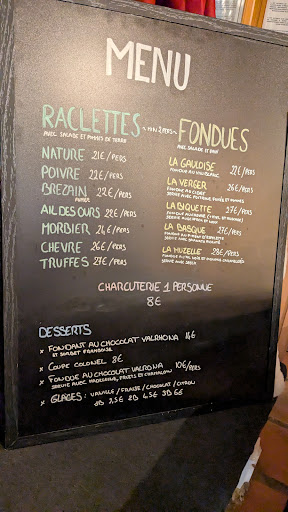 MENU
RACLETTES
AVEC SALADE ET POMMES DE TERRE
MIN 2 PERS
FONDUES
AVEC SALADE ET PAIN
NATURE 21€/PERS
POIVRE 22€/PERS
BREZAIN 22€/PERS
FUMÉE
AIL DES OURS 22€/PERS
MORBIER 24€/PERS
CHEVRE 26€/PERS
TRUFFES 27€/PERS
LA GAULOISE 22€/PERS
FONDUE AU VIN BLANC
LA VERGER 26€/PERS
FONDUE AU CIDRE
LA BIQUETTE 27€/PERS
LA BASQUE 27€/PERS
LA MUZELLE 28€/PERS
CHARCUTERIE 1 PERSONNE
8€
DESSERTS
x FONDANT AU CHOCOLAT VALRHONA
ET SORBET FRAMBOISE
x COUPE COLONEL 8€
x FONDUE AU CHOCOLAT VALRONA 10€/PERS
SERVIE AVEC MADELEINE, FRUITS ET CHAMALOW
x GLACES : VANILLE / FRAISE / CHOCOLAT / CITRON
2B 4.5€ 3B 6€